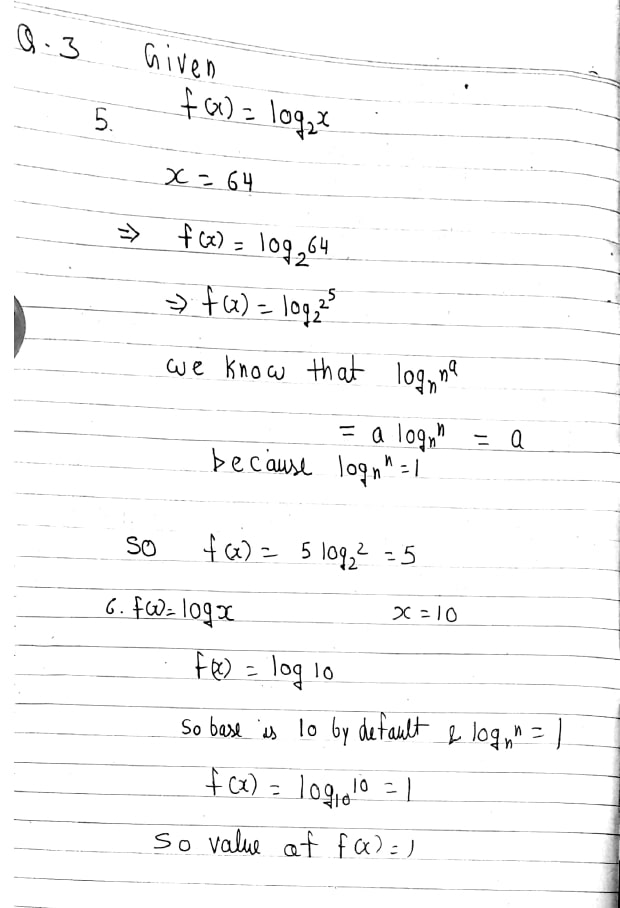 Q.3 Given
5. f(x) = log₂x
x = 64
⇒ f(x) = log₂64
⇒ f(x) = log₂2⁵
we know that logₙnᵃ
= a logₙn = a
because logₙn = 1
So f(x) = 5 log₂2 = 5
6. f(x) = log x x = 10
f(x) = log 10
So base is 10 by default & logₙn = 1
f(x) = log₁₀10 = 1
So value of f(x) = 1